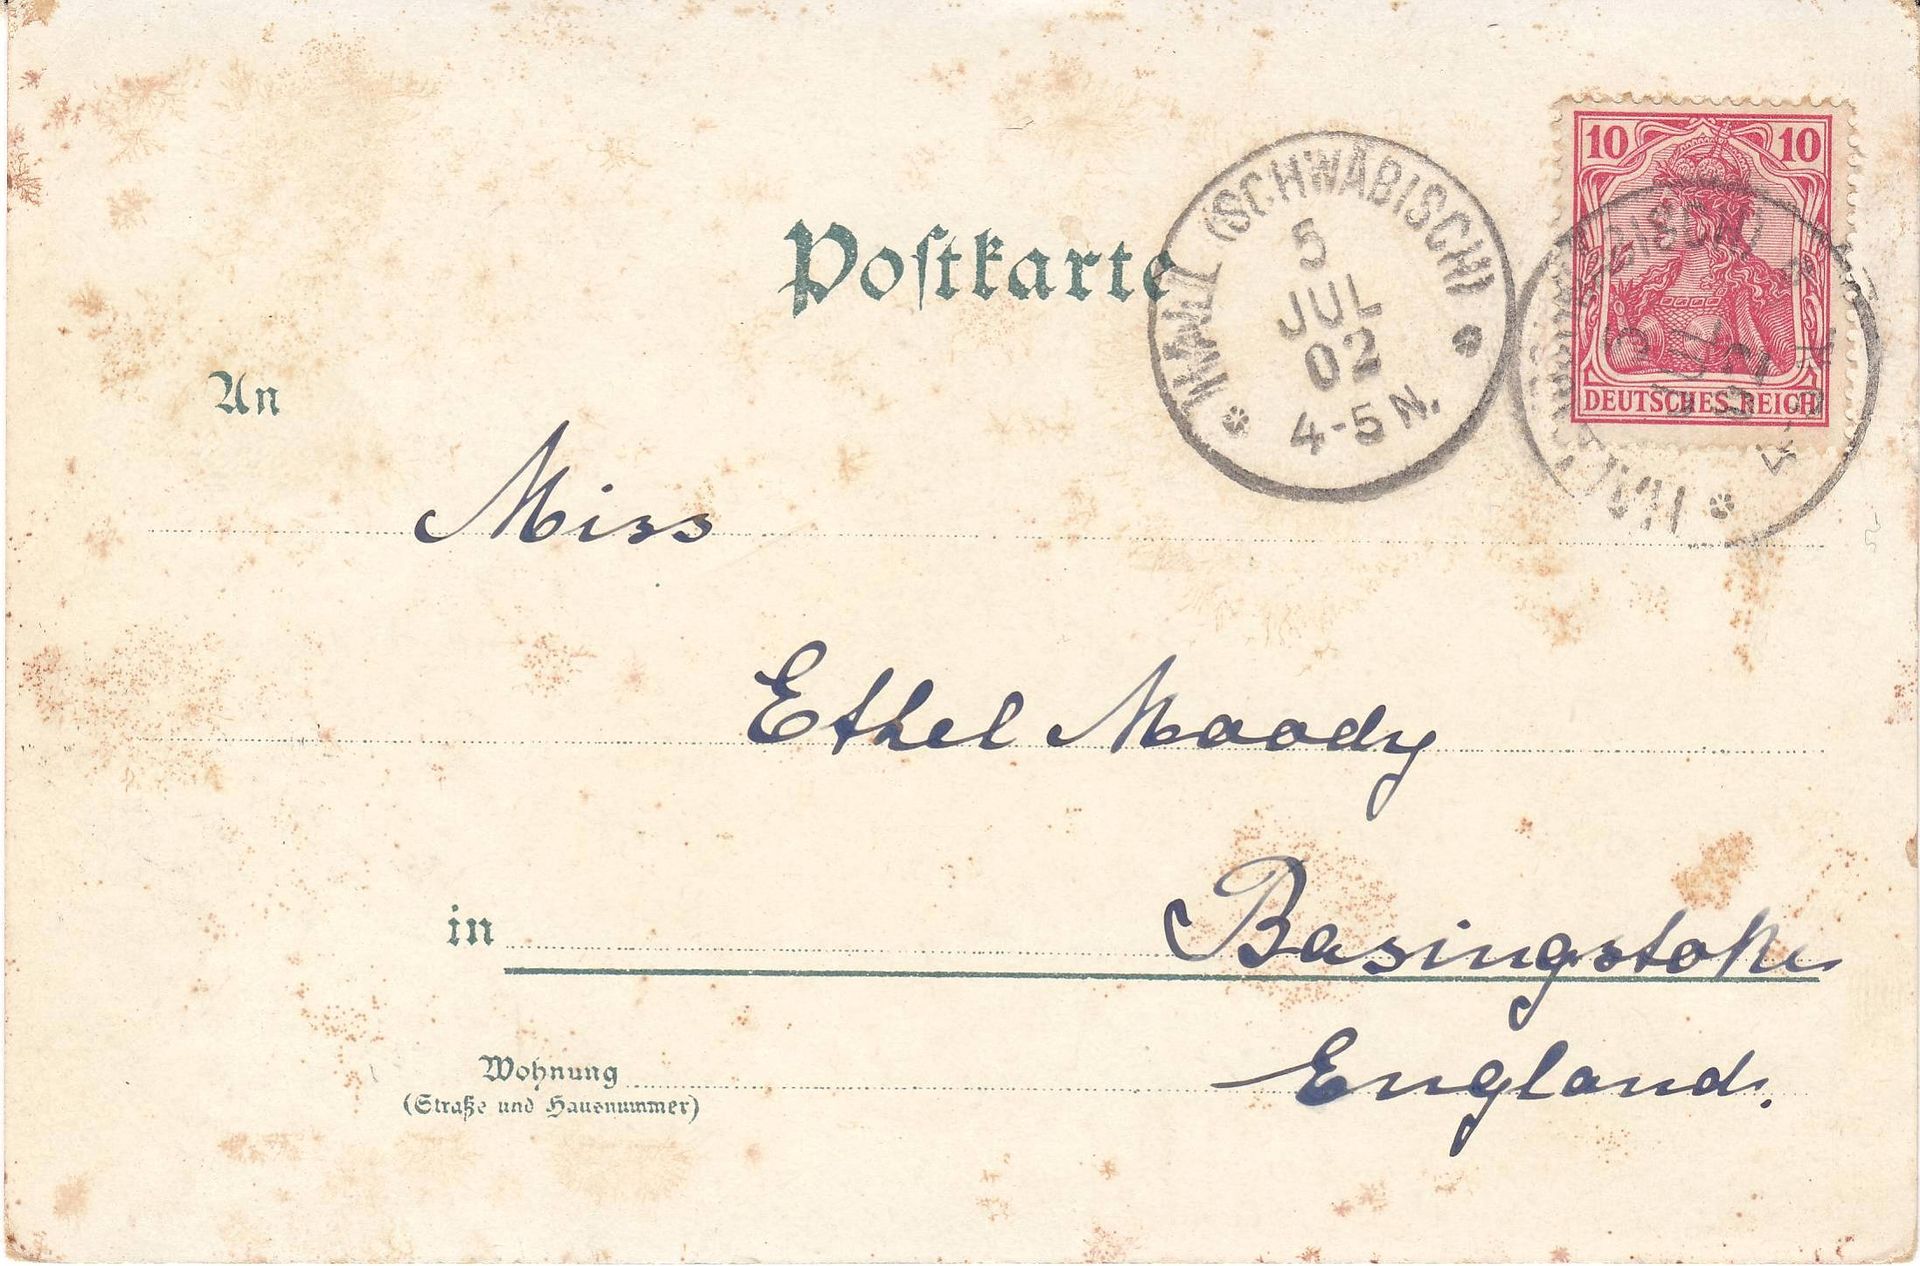 Postkarte
HALL (SCHWÄBISCH)
5
JUL
02
4-5 N.
10 10
DEUTSCHES REICH
An
Miss
Ethel Moody
in Basingstoke
England.
Wohnung
(Straße und Hausnummer)